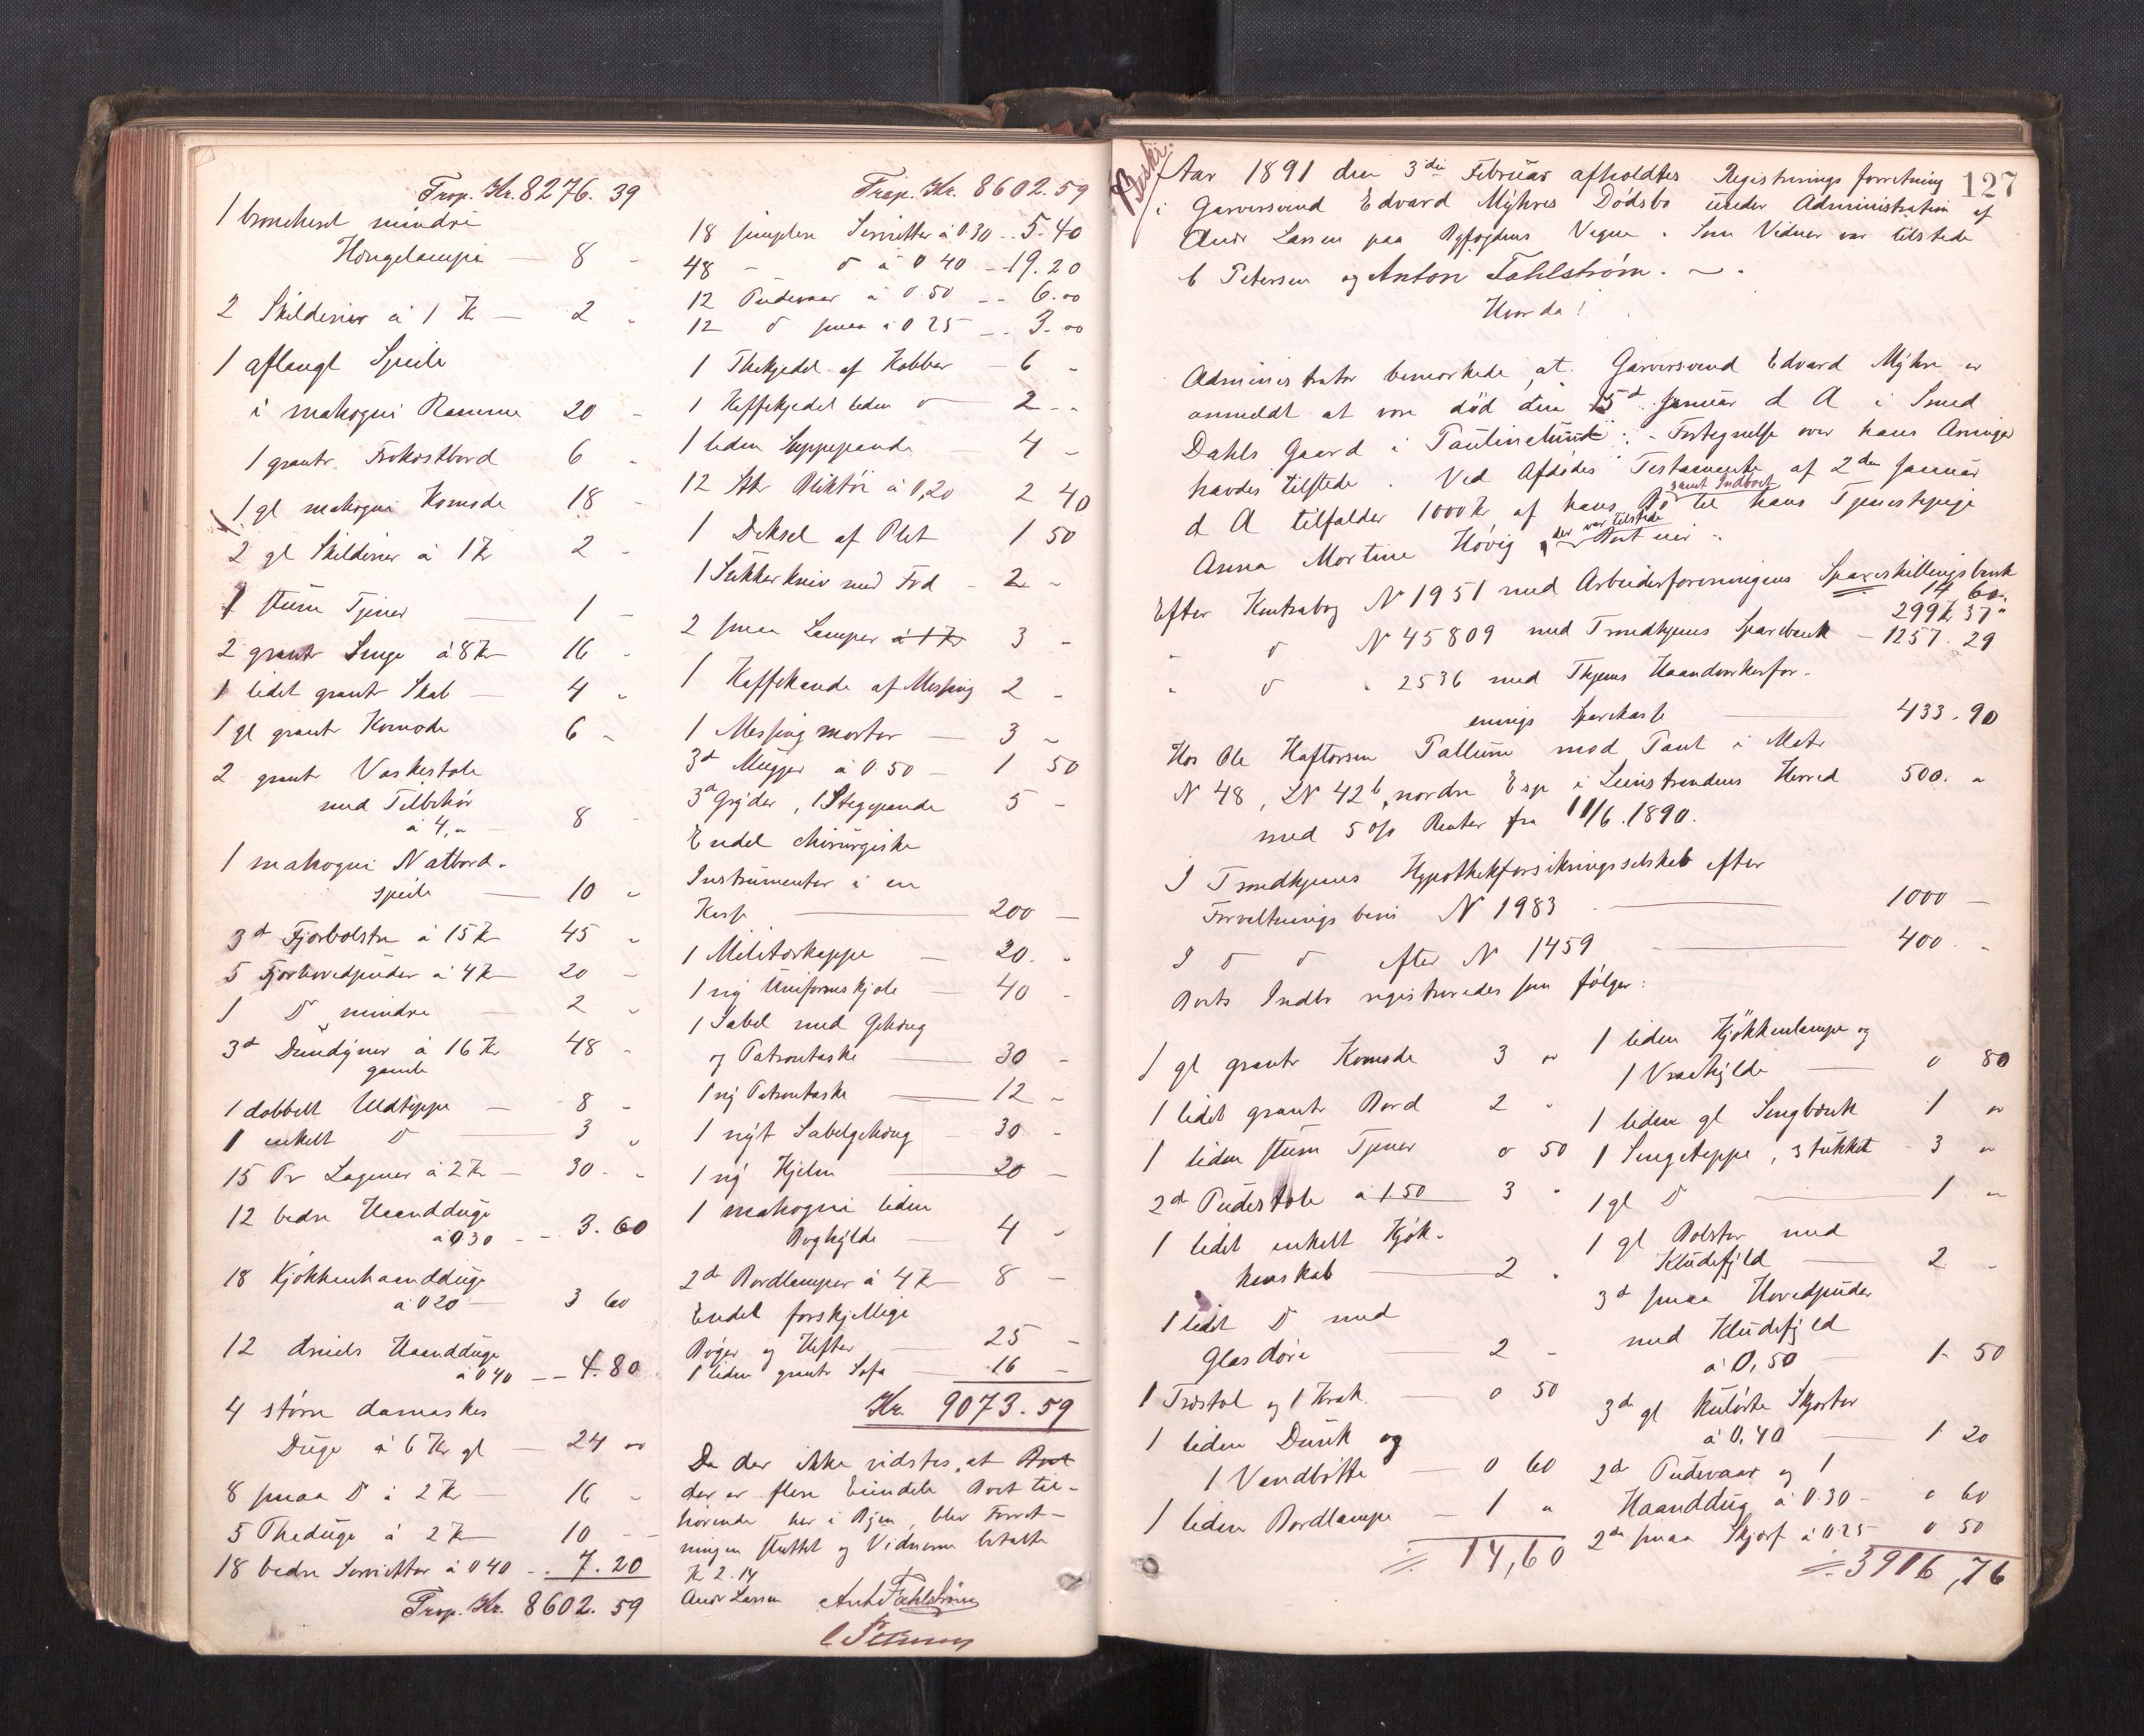 Trsp. Kr. 8276. 39
1 broncheret mindre
Hængelampe — 8 -
2 Skilderier à 1 Kr — 2 -
1 aflangt Speile
i mahogni Ramme 20 -
1 grantr. Frokostbord 6 -
1 gl mahogni Komode 18 -
2 gl Skilderier à 1 Kr 2 -
1 stum Tjener — 1 -
2 grantr Senge à 8 Kr 16 -
1 lidet grantr Skab — 4 -
1 gl grantr Komode 6 -
2 grantr Vaskestole
med Tilbehør
à 4,- — 8 -
1 mahogni Natbord-
speile — 10 -
3d Fjærbolstre à 15 Kr 45 -
5 Fjærhovedpuder à 4 Kr 20 -
1 D mindre — 2 -
3d Dundyner à 16 Kr 48 -
gamle
1 dobbelt Uldteppe — 8 -
1 enkelt D — 3 -
15 Pr Lagener à 2 Kr — 30 -
12 bedre Haandduge
à 0 30 - - 3. 60
18 Kjøkkenhaandduge
à 0 20 — 3 60
12 dreiels Haandduge
à 0 40 - - 4. 80
4 større damaskes
Duge à 6 Kr gl — 24 00
8 smaa D à 2 Kr — 16 -
5 Theduge à 2 Kr 10 - -
18 bedre Servietter à 0 40 - . 7. 20
Trsp. Kr. 8602. 59
Trsp. Kr. 8602. 59
18 simplere Servietter à 0 30 - - 5. 40
48 - D à 0 40 - 19. 20
12 Pudevaar à 0. 50 - - 6. 00
12 D smaa à 0 25 - - 3. 00
1 Thekjedel af Kobber — 6 -
1 Kaffekjedel liden D — 2 - -
1 liden Suppepande — 4 -
12 Stkr Bliktöi à 0,20 2 40
1 Deksel af Plet 1 50
1 Sukkerkniv med Fod - 2 -
2 smaa Lamper à 1 Kr 3 -
1 Kaffekande af Messing 2 -
1 Messingmorter — 3 -
3d Mugger à 0. 50 - 1 50
3d Gryder, 1 Stegepande 5 -
Endel chirurgiske
Instrumenter i en
Kasse — 200 —
1 Militærkappe — 20. -
1 ny Uniformskjole — 40 -
1 Sabel med Gehæng
og Patrontaske — 30 -
1 ny Patrontaske — 12 -
1 nyt Sabelgehæng — 30 -
1 ny Hjelm — 20 —
1 mahogni liden
Boghylde — 4 -
2de Bordlamper à 4 Kr — 8 —
Endel forskjellige
Bøger og Hefter — 25 -
1 liden grantr Sofa — 16 —
Kr. 9073. 59
Da der ikke vidstes, at Boet
der er flere Eiendele Boet til-
hørende her i Byen, blev Forret-
ningen sluttet og Vidnerne betalte
Kr 2. 14
Andr Larsen Ant Fahlstrøm
C Petersen
127
Aar 1891 den 3die Februar afholdtes Registrerings forretning
i Garversvend Edvard Myhres Dødsbo under Administration af
Andr Larsen paa Byfogdens Vegne. Som Vidner var tilstede
C Petersen og Anton Fahlstrøm. — .
Hvorda!
Administrator bemærkede, at Garversvend Edvard Myhre er
anmeldt at være død den 15d Januar d A i Smed
Dahls Gaard i Paulinelund. - Fortegnelse over hans Arvinger
havdes tilstede. Ved Afdødes Testamente af 2den Januar
samt Indboet
d A tilfalder 1000 Kr af hans Bo til hans Tjenestepige
var tilstede
Anna Martine Høvig, der Boet eier -
Efter Kontrabog № 1951 med Arbeiderforeningens Spareskillingsbank
14 60.
299 Kr 37 "
" D № 45809 med Trondhjems Sparebank - 1257. 29
" D " 2536 med Thjems Haandværkerfor-
enings Sparekasse — 433. 90
Hos Ole Haftorsen Tallum mod Pant i Matr
№ 48, L№ 42b, nordre Esp i Leinstrandens Herred 500. "
med 5 o/o Renter fra 11/6. 1890.
I Trondhjems Hypothekforsikringsselskab efter
Forvaltnings bevis № 1983 — 1000 —
I D D efter № 1459 — 400. -
Boets Indbo registreredes som følger:
1 gl grantr Komode 3 "
1 lidet grantr Bord 2 "
1 liden stum Tjener 0 50
2de Pudestole à 1 50 3 "
1 lidet enkelt Kjøk-
kenskab — 2 "
1 lidet D med
Glasdøre — 2 -
1 Træstol og 1 Krak — 0 50
1 liden Dunk og
1 Vandbøtte — 0 60
1 liden Bordlampe — 1 "
14,60
1 liden Kjøkkenlampe og
1 Vraahylde — 0 80
1 liden gl Sengbænk 1 "
1 Sengeteppe, stukket - 3 "
1 gl D — 1 "
1 gl Bolster med
Kludefyld — 2 -
3d smaa Hovedpuder
med Kludefyld
à 0,50 — 1 50
3de gl kulørte Skjorter
à 0,40 — 1 20
2de Pudevaar og 1
Haanddug à 0.30 - 0 60
2de smaa Skjærf à 0 25 - 0 50
3916,76